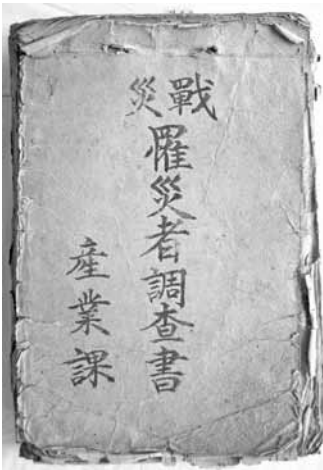 戰災
罹災者調査書
産業課